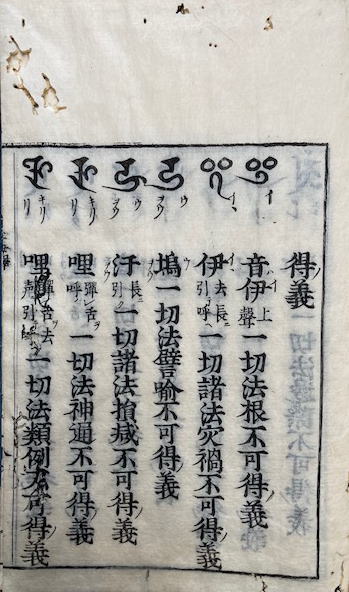 得義
𑖂 イ 音伊上聲一切法根不可得義
𑖃 イヽ 伊去長引呼一切諸法灾禍不可得義
𑖄 ウ 塢一切法譬喻不可得義
𑖅 汙長引一切諸法損減不可得義
𑖆 キリ 哩彈舌呼一切法神通不可得義
𑖇 キリ 哩彈舌去聲引呼一切法類例不可得義